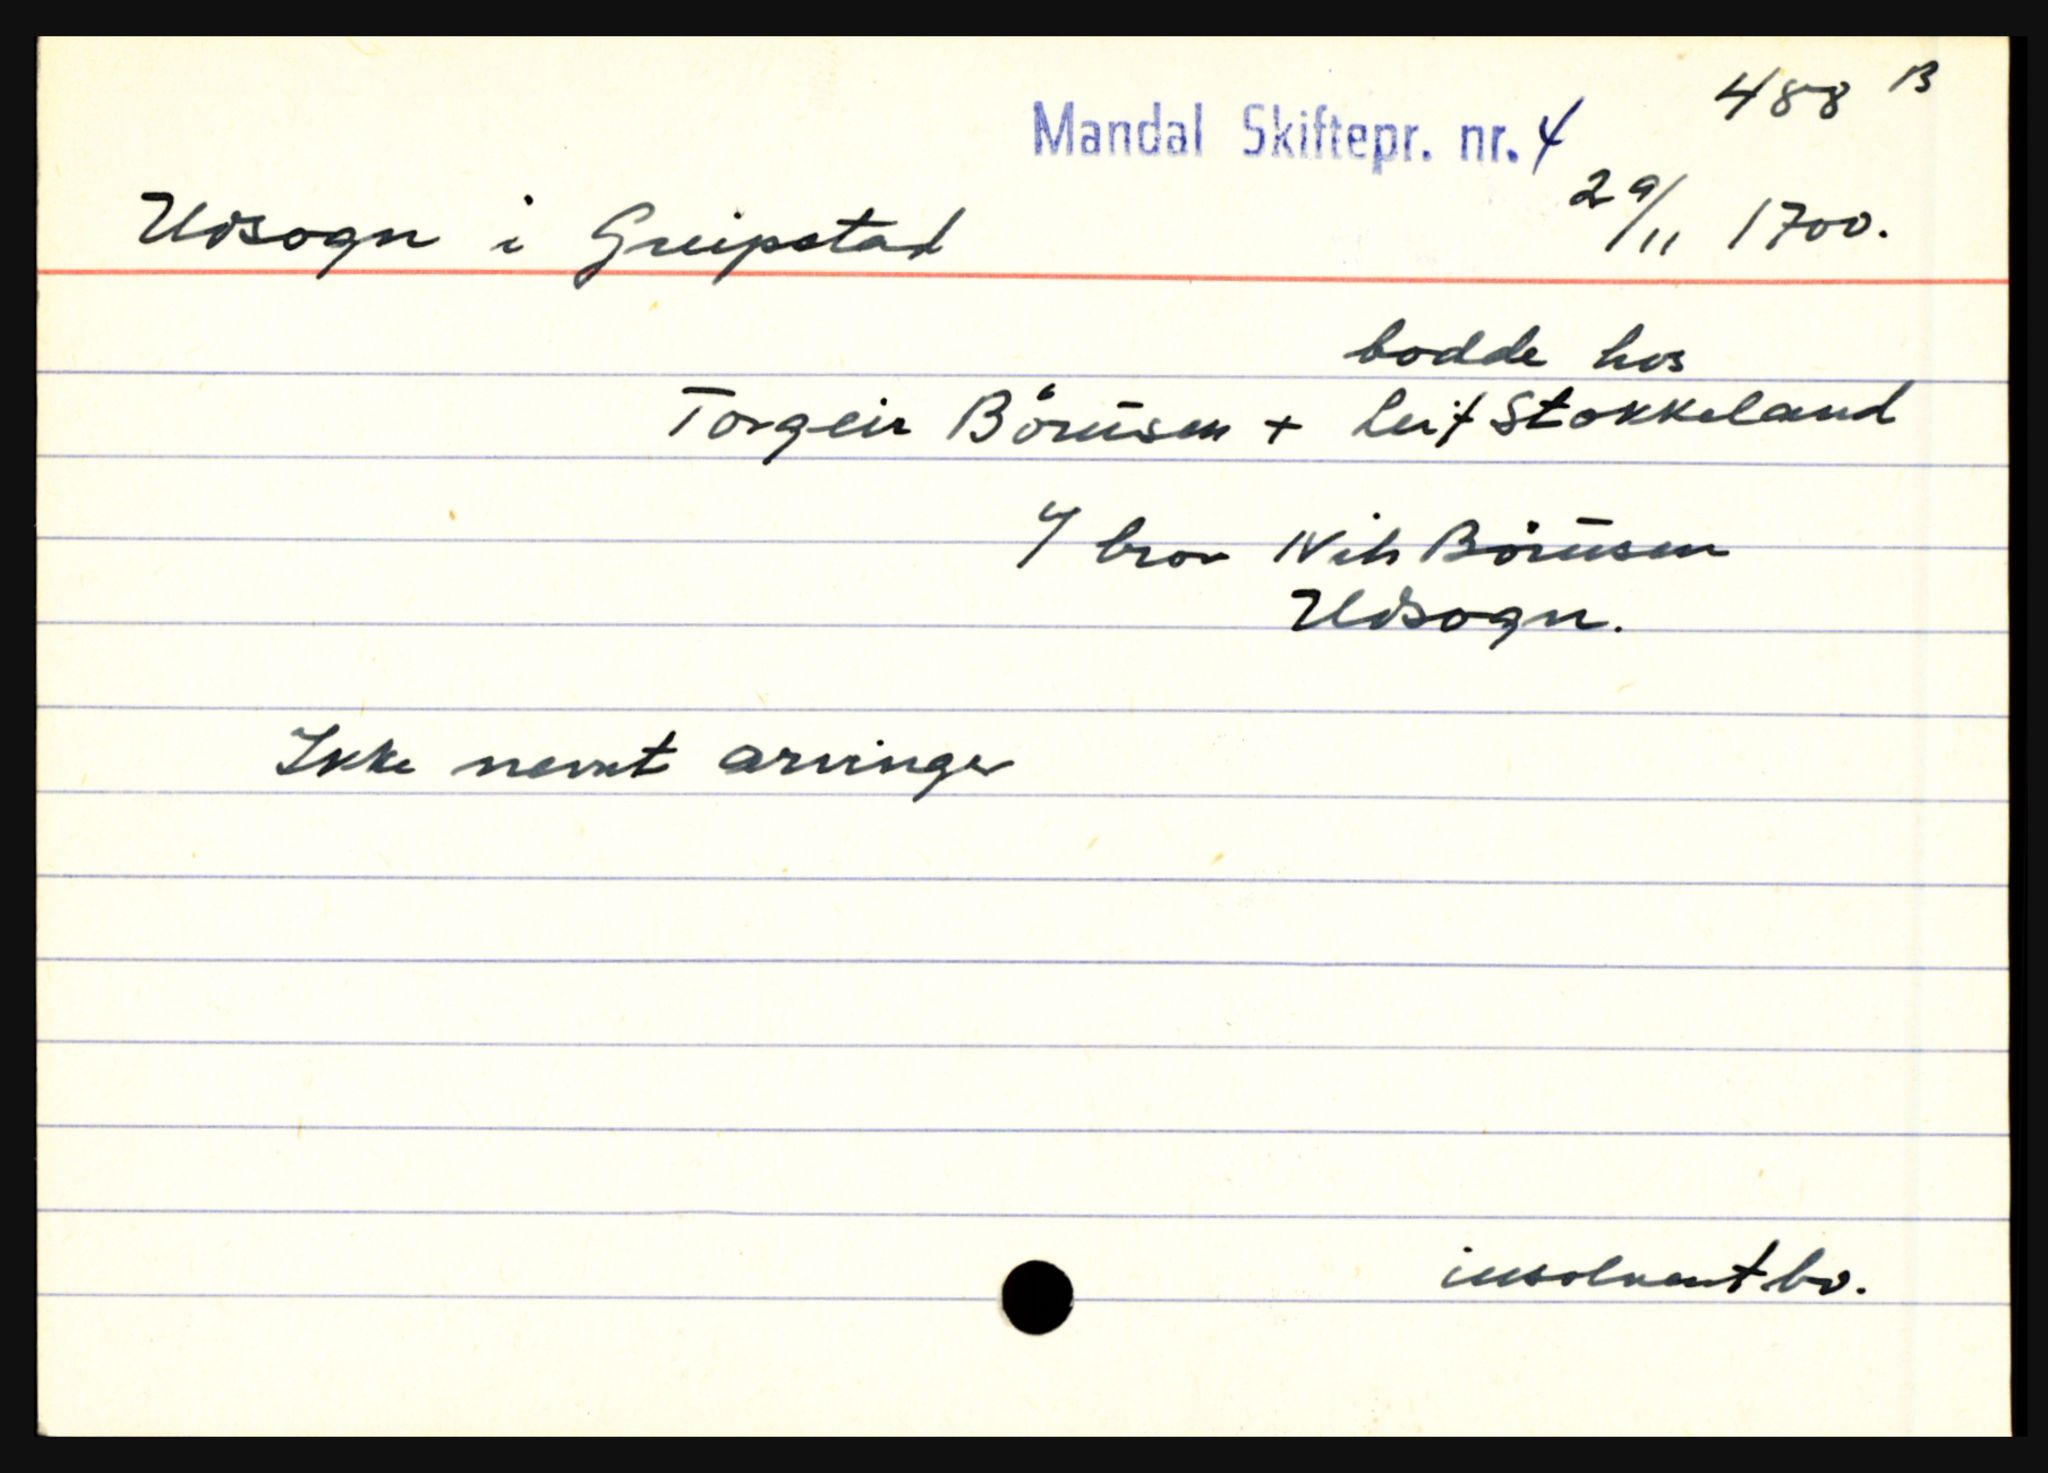 488 B
Mandal Skiftepr. nr. 4
29/11 1700.
Udsogn i Greipstad
bodde hos
Torgeir Börusen + Leif Stokkeland
bror Nils Börusen
Udsogn.
Ikke nevnt arvinger
insolvent bo.